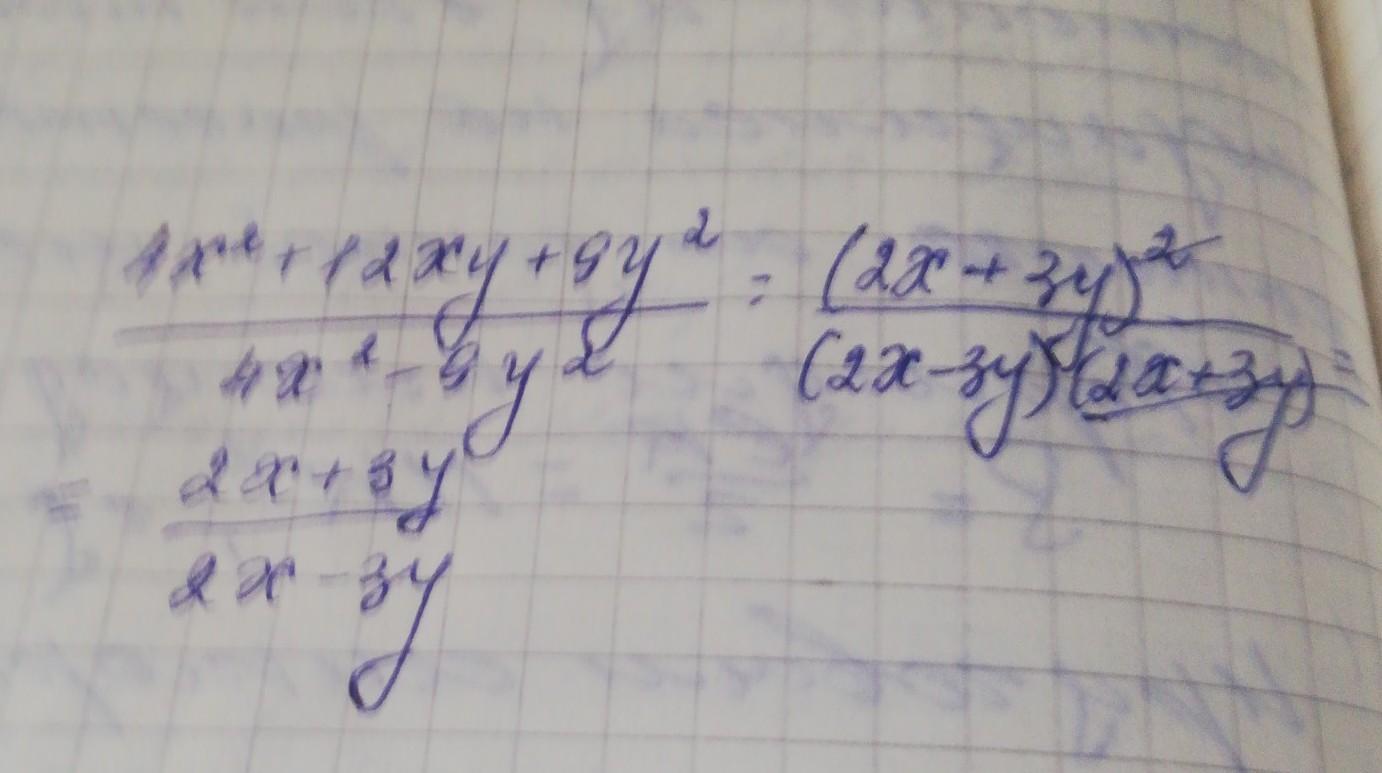 4x² + 12xy + 9y² = (2x + 3y)²
4x² - 9y² (2x - 3y)(2x + 3y) =
= 2x + 3y
2x - 3y